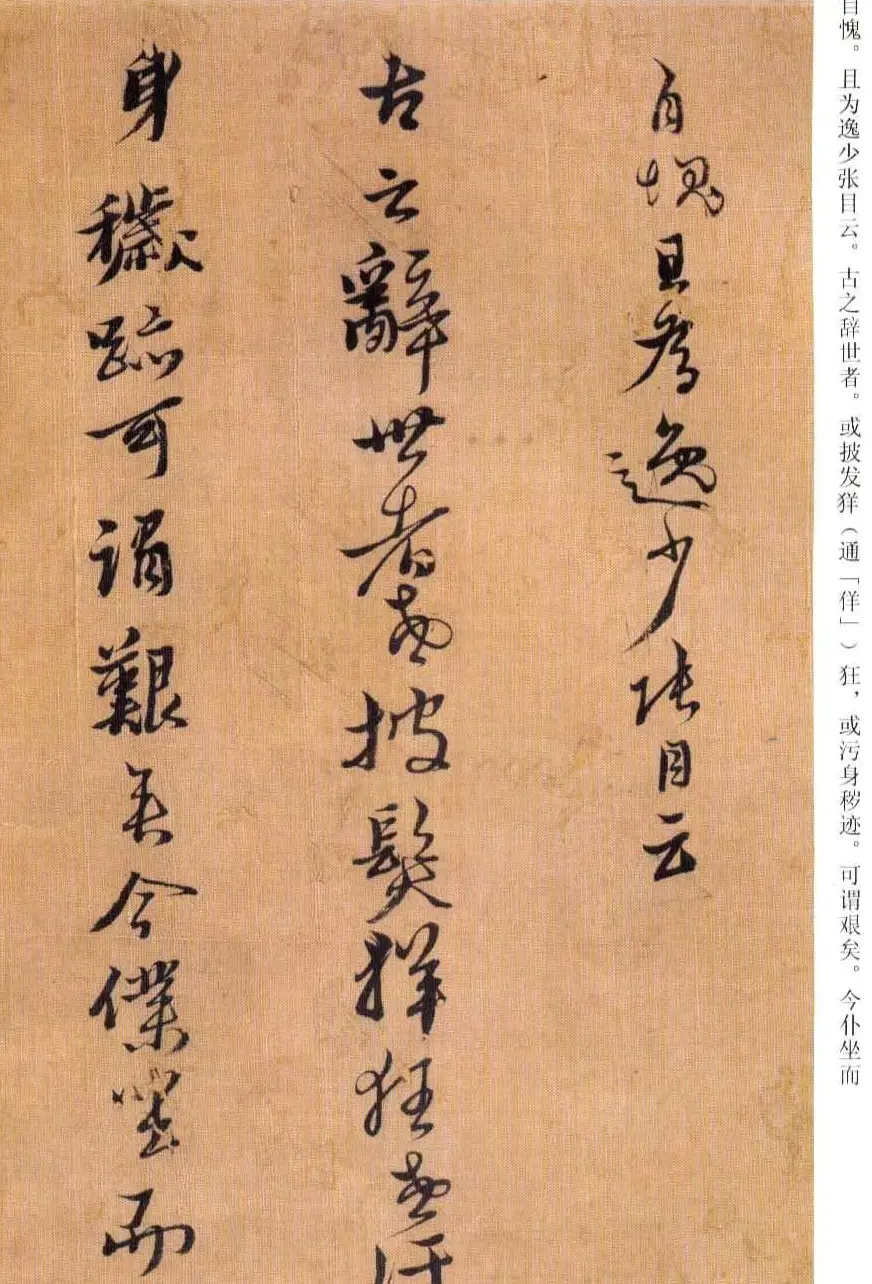 自愧。且为逸少张目云。古之辞世者。或披发𢓭（通「佯」）狂，或污身秽迹。可谓艰矣。今仆坐而
自愧且為逸少張目云
古之辭世者或披髮𢓭狂或汙
身穢跡可謂艱矣今僕坐而